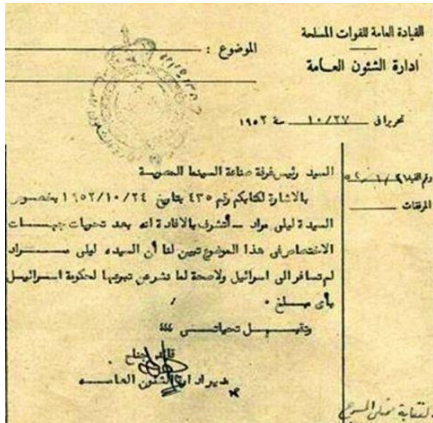 القيادة العامة للقوات المسلحة
ادارة الشئون العامة
الموضوع :
تحريرا في ١٠/٢٧ سنة ١٩٥٢
رقم القيد
المرفقات
السيد رئيس غرفة صناعة السينما المصرية
بالاشارة لكتابكم رقم ٤٣٥ بتاريخ ١٩٥٢/١٠/٢٤ بخصوص
السيدة ليلى مراد ــ أتشرف بالافادة انه بعد تحريات جهات
الاختصاص في هذا الموضوع تبين لنا أن السيده ليلى مراد
لم تسافر الى اسرائيل ولاصحة لما نشر عن تبرعها لحكومة اسرائيل
بأى مبلغ ٠
وتقبل تحياتى ٤٤٤
قائد جناح
مدير ادارة الشئون العامه